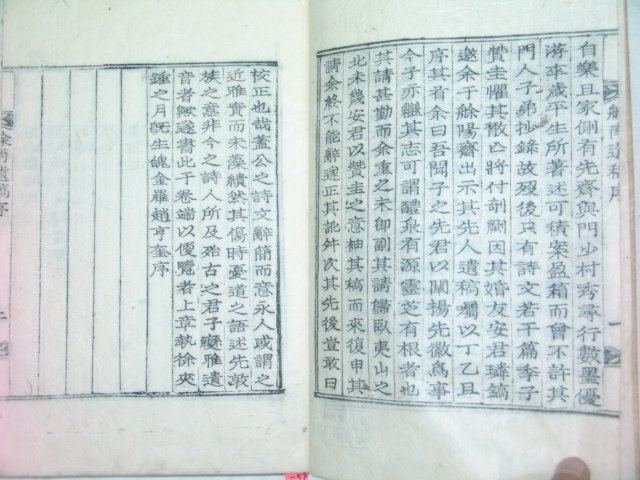 南遺稿序 一
自樂且家側有先齋與門少村秀尋行數墨優
游卒歲平生所著述可積案盈箱而曾不許其
門人子弟抄錄故歿後只有詩文若干篇季子
贊圭懼其散亡將付剞劂因其婚友安君璘鎬
邀余于餘陽齋出示其先人遺稿囑以丁乙且
序其有余曰吾聞子之先君以闡揚先徽爲事
今子亦繼其志可謂醴泉有源靈芝有根者也
其請甚勤而余重之未卽副其請歸臥夷山之
北未幾安君以贊圭之意袖其稿而來復申其
請余終不能辭遂正其訛舛次其先後豈敢曰
校正也哉蓋公之詩文辭簡而意永人或謂之
近雅實而未藻繢然其傷時憂道之語述先敦
族之意非今之詩人所及殆古之君子變雅遺
音者歟遂書此于卷端以便覽者上章執徐夾
鍾之月旣生魄金羅趙亨奎序
南遺稿序 二